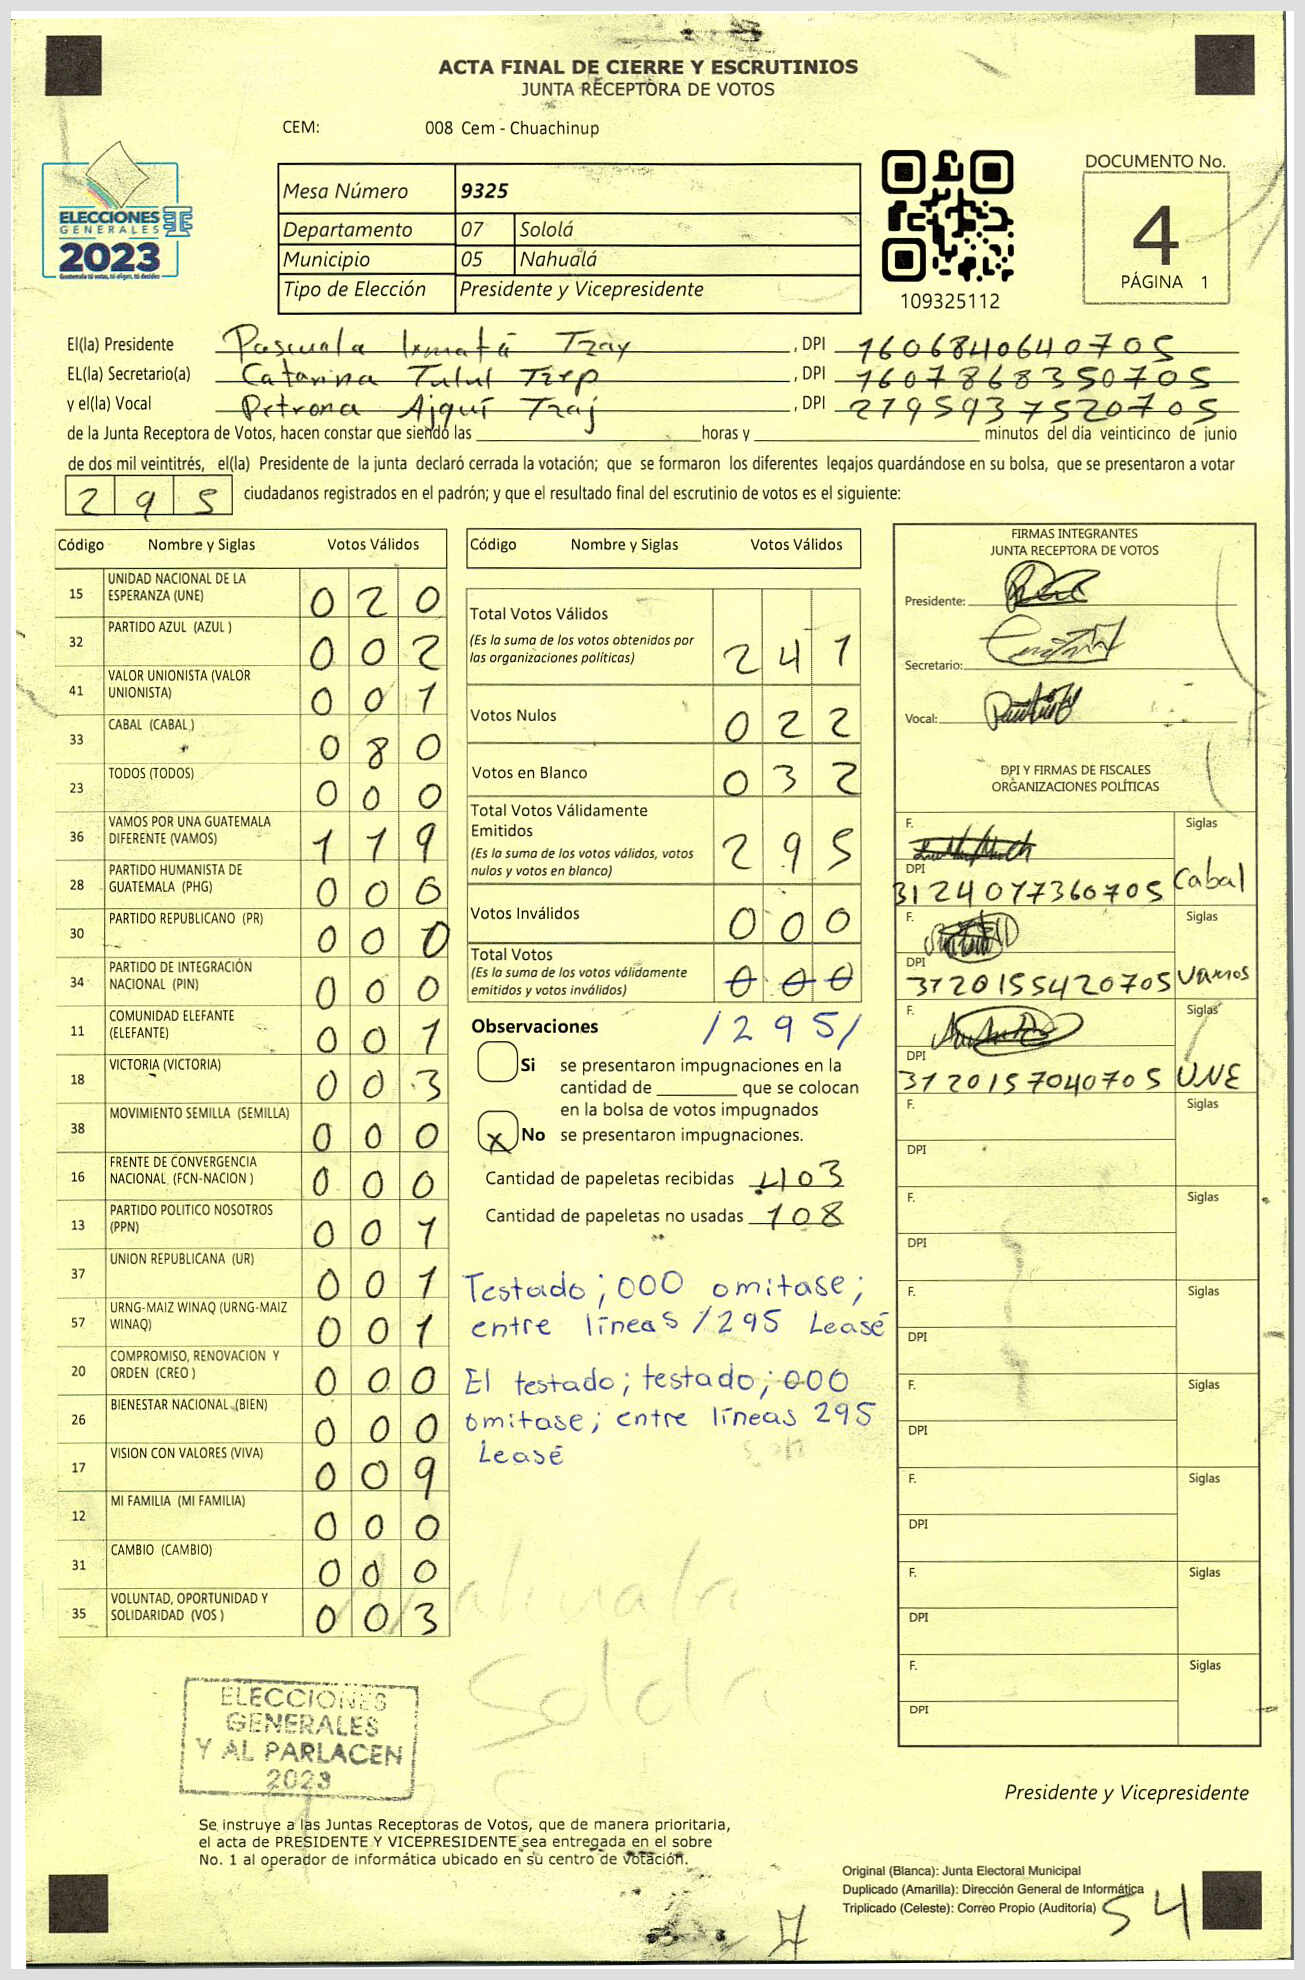 ACTA FINAL DE CIERRE Y ESCRUTINIOS
JUNTA RECEPTORA DE VOTOS
CEM: 008 Cem - Chuachinup
ELECCIONES
GENERALES
2023
Mesa Número 9325
Departamento 07 Sololá
Municipio 05 Nahualá
Tipo de Elección Presidente y Vicepresidente
109325112
DOCUMENTO No.
4
PÁGINA 1
El(la) Presidente Pascuala Ixmatá Tzay, DPI 1606840640705
EL(la) Secretario(a) Catarina Tulul Tzep, DPI 1607868350705
y el(la) Vocal Petrona Ajquí Tzaj, DPI 2795937520705
de la Junta Receptora de Votos, hacen constar que siendo las horas y minutos del día veinticinco de junio
de dos mil veintitrés, el(la) Presidente de la junta declaró cerrada la votación; que se formaron los diferentes legajos guardándose en su bolsa, que se presentaron a votar
295 ciudadanos registrados en el padrón; y que el resultado final del escrutinio de votos es el siguiente:
Código Nombre y Siglas Votos Válidos
15 UNIDAD NACIONAL DE LA ESPERANZA (UNE) 020
32 PARTIDO AZUL (AZUL ) 002
41 VALOR UNIONISTA (VALOR UNIONISTA) 001
33 CABAL (CABAL ) 080
23 TODOS (TODOS) 000
36 VAMOS POR UNA GUATEMALA DIFERENTE (VAMOS) 119
28 PARTIDO HUMANISTA DE GUATEMALA (PHG) 000
30 PARTIDO REPUBLICANO (PR) 000
34 PARTIDO DE INTEGRACIÓN NACIONAL (PIN) 000
11 COMUNIDAD ELEFANTE (ELEFANTE) 001
18 VICTORIA (VICTORIA) 003
38 MOVIMIENTO SEMILLA (SEMILLA) 000
16 FRENTE DE CONVERGENCIA NACIONAL (FCN-NACION ) 000
13 PARTIDO POLITICO NOSOTROS (PPN) 001
37 UNION REPUBLICANA (UR) 001
57 URNG-MAIZ WINAQ (URNG-MAIZ WINAQ) 001
20 COMPROMISO, RENOVACION Y ORDEN (CREO ) 000
26 BIENESTAR NACIONAL (BIEN) 000
17 VISION CON VALORES (VIVA) 009
12 MI FAMILIA (MI FAMILIA) 000
31 CAMBIO (CAMBIO) 000
35 VOLUNTAD, OPORTUNIDAD Y SOLIDARIDAD (VOS ) 003
Código Nombre y Siglas Votos Válidos
Total Votos Válidos 241
(Es la suma de los votos obtenidos por
las organizaciones políticas)
Votos Nulos 022
Votos en Blanco 032
Total Votos Válidamente
Emitidos 295
(Es la suma de los votos válidos, votos
nulos y votos en blanco)
Votos Inválidos 000
Total Votos 000
(Es la suma de los votos válidamente
emitidos y votos inválidos)
Observaciones /295/
Si se presentaron impugnaciones en la
cantidad de que se colocan
en la bolsa de votos impugnados
X No se presentaron impugnaciones.
Cantidad de papeletas recibidas 403
Cantidad de papeletas no usadas 108
Testado; 000 omitase;
entre líneas /295 Leasé
El testado; testado; 000
omitase; entre líneas 295
Leasé
FIRMAS INTEGRANTES
JUNTA RECEPTORA DE VOTOS
Presidente:
Secretario:
Vocal:
DPI Y FIRMAS DE FISCALES
ORGANIZACIONES POLÍTICAS
F. Siglas
DPI
3124077360705 Cabal
F. Siglas
DPI
3120155420705 Vamos
F. Siglas
DPI
3120157040705 UNE
F. Siglas
DPI
F. Siglas
DPI
F. Siglas
DPI
F. Siglas
DPI
F. Siglas
DPI
F. Siglas
DPI
F. Siglas
DPI
ELECCIONES
GENERALES
Y AL PARLACEN
2023
Presidente y Vicepresidente
Se instruye a las Juntas Receptoras de Votos, que de manera prioritaria,
el acta de PRESIDENTE Y VICEPRESIDENTE sea entregada en el sobre
No. 1 al operador de informática ubicado en su centro de votación.
Original (Blanca): Junta Electoral Municipal
Duplicado (Amarilla): Dirección General de Informática
Triplicado (Celeste): Correo Propio (Auditoría)
54